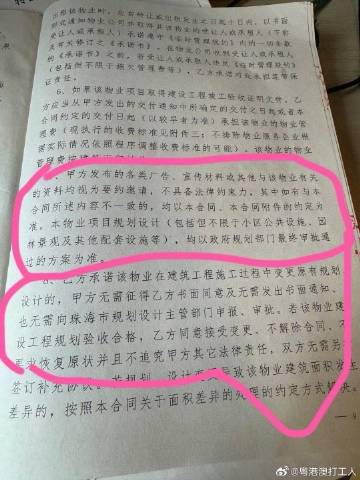 让该物业时，
受让人或承租人）承诺遵守《临时管理规约》
有关等文之《承诺书》
的《承诺书》之前，
（包括但不限于拖欠管理费等），乙方承诺对此承担连带保
证责任。
6、如果该物业项目取得建设工程竣工验收证明文件，乙
方应当从甲方发出的交付通知中所确定的交付之日起或者本
合同约定的交付日起（以较早者为准）承担该物业的物业管
理费（现执行的收费标准见附件三；不排除物业服务企业根
据实际情况依照程序调整收费标准的可能）。该物业的物业
管理费按
7、甲方发布的各类广告、宣传材料或其他与该物业有关
的资料均视为要约邀请，不具备法律约束力，其中如有与本
合同所述内容不一致的，均以本合同、本合同附件的约定为
准。本物业项目规划设计（包括但不限于小区公共设施、园
林景观及其他配套设施等），均以政府规划部门最终审批通
过的方案为准。
8、乙方承诺该物业在建筑工程施工过程中变更原有规划
设计的，甲方无需征得乙方书面同意及无需发出书面通知，
也无需向珠海市规划设计主管部门申报、审批。若该物业建
设工程规划验收合格，乙方同意接受变更、不解除合同、不
要求恢复原状并且不追究甲方其它法律责任，双方无需另
签订补充协议。若规划、设计变更导致该物业建筑面积发生
差异的，按照本合同关于面积差异的处理的约定方式解决。
@粤港澳打工人